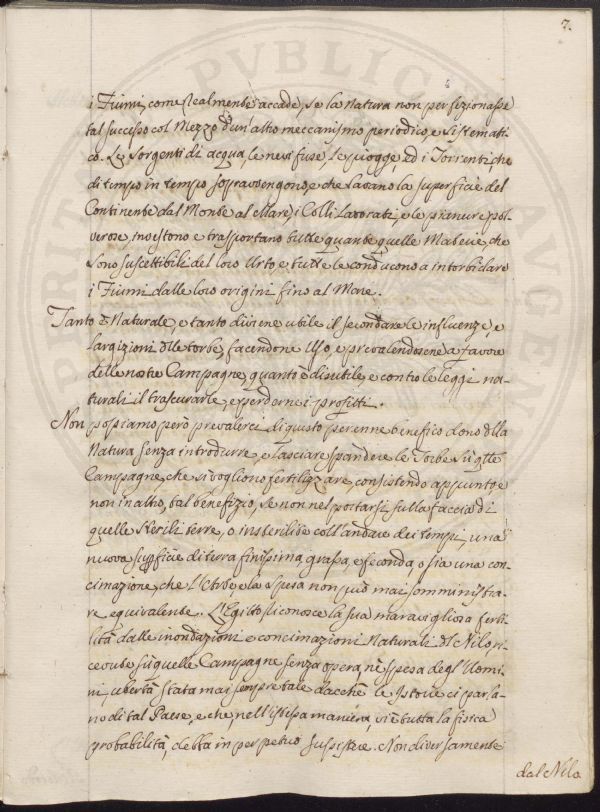 7.
i Fiumi, come realmente accade, se la natura non perfezionasse
tal successo col mezzo d'un'altro meccanismo periodico, e sistemati
co. Le sorgenti di acqua, le nevi fuse, le piogge, ed i Torrenti, che
di tempo in tempo sopravvengono, e che lavano la superficie del
Continente dal Monte al Mare, i Colli lavorati, e le pianure pol-
verose, investono e trasportano tutte quante quelle Materie, che
sono suscettibili del loro Urto, e tutte le conducono a intorbidare
i Fiumi dalle loro origini fino al Mare.
Tanto è Naturale, e tanto diviene utile il secondare le influenze, e
largizioni dlle torbe, facendone Uso, e prevalendosene a favore
delle nostre Campagne, quanto è disutile, e contro le leggi na-
turali il trascurarle, e perderne i profitti.
Non possiamo però prevalerci di questo perenne benefico dono dlla
Natura senza introdurre, e lasciare spandere le Torbe sù qlle
Campagne, che si vogliono fertilizzare, consistendo appunto e
non in altro, tal benefizio, se non nel portarsi sulla faccia di
quelle sterili terre, o insterilite coll'andare dei tempi, una
nuova supficie di terra finissima, grassa, e feconda, o sia una con
cimazione, che l'Arte, e la spesa non può mai somministra-
re equivalente. L'Egitto riconosce la sua maravigliosa ferti
lità dalle inondazioni e concimazioni Naturali dl Nilo, ri
cevute sù quelle Campagne senza opera, nè spesa degl'Uomi
ni, ubertà stata mai sempre tale dacchè le Istorie ci parla-
no di tal Paese, e che, nell'istessa maniera, vi è tutta la fisica
probabilità, debba in perpetuo sussistere. Non diversamente
dal Nilo